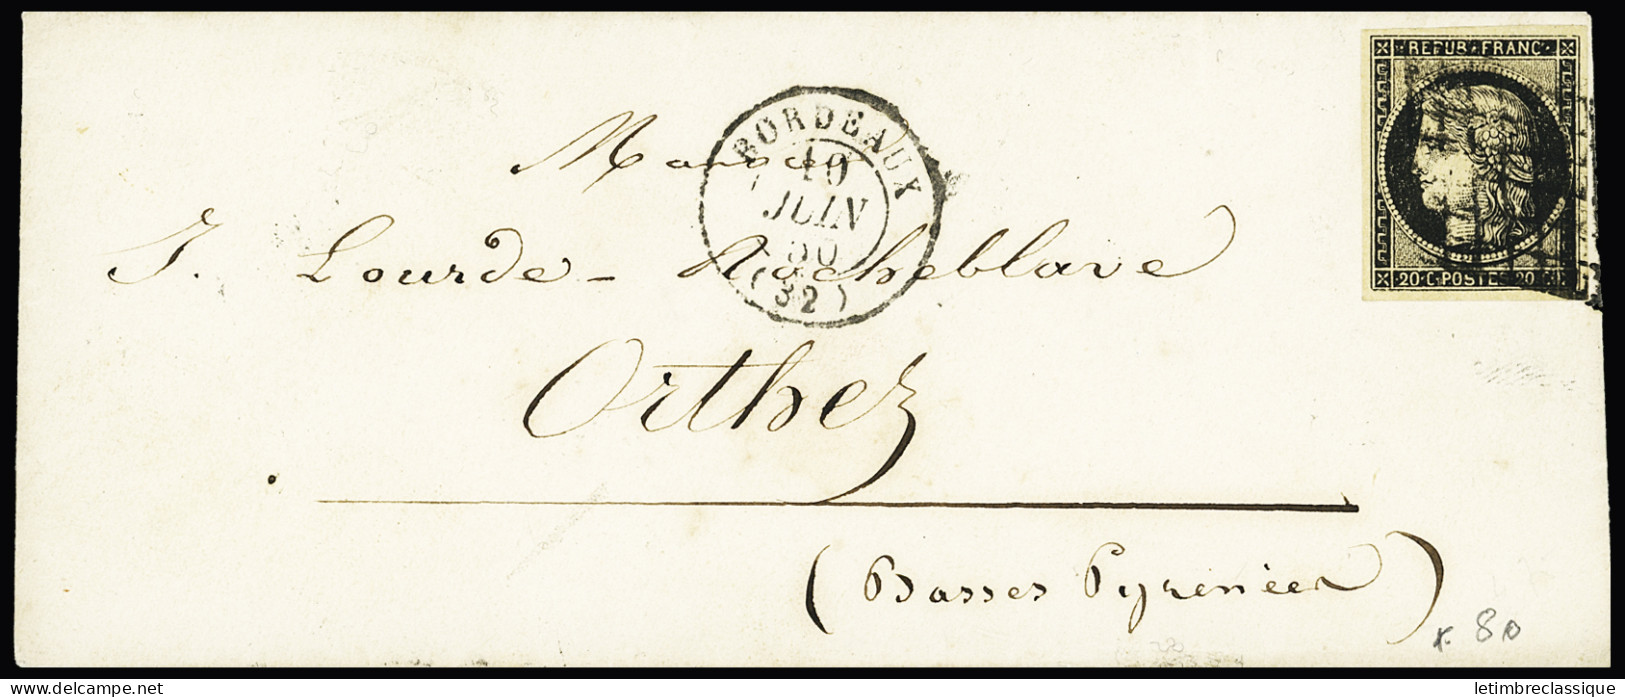 REPUB·FRANC·
20·C·POSTES·20·C
BORDEAUX
19
JUIN
50
(32)
J. Lourde-Rocheblave
Orthez
(Basses Pyrénées)
80
PICTURES-BANK.com
letimbreclassique